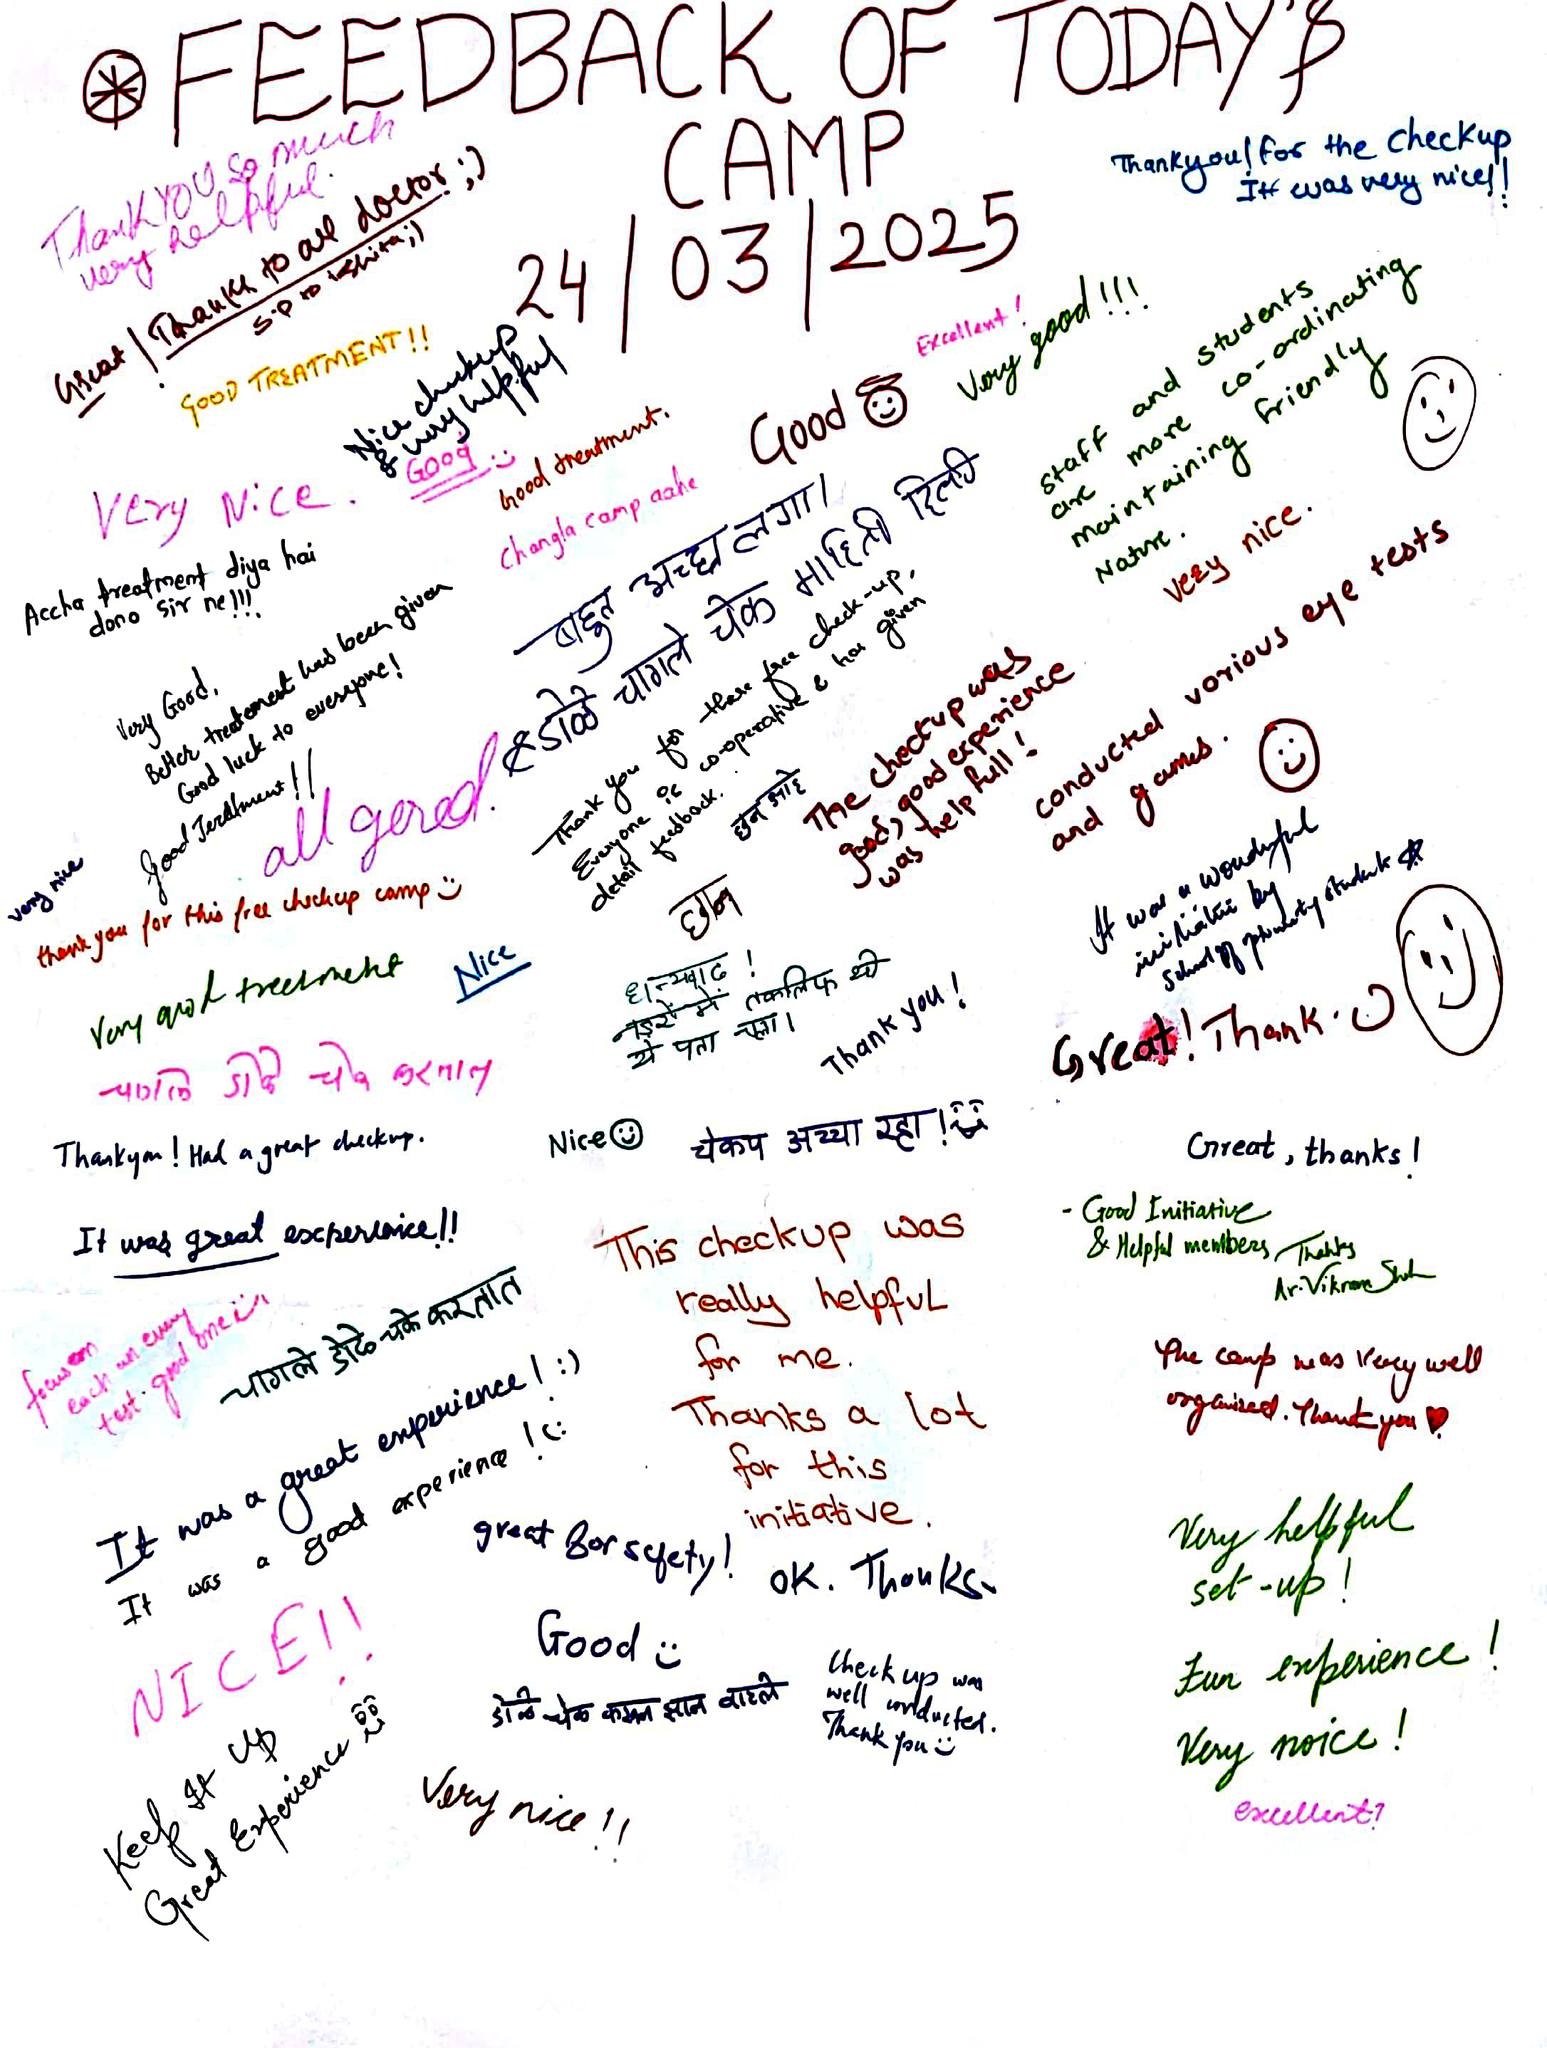 FEEDBACK OF TODAY'S
CAMP
24/03/2025
Thank YOU so much
very helpful.
Great! Thanks to all doctor ;)
Thankyou! for the checkup
It was very nice!!
GOOD TREATMENT!!
Nice checkup
& very helpful
GOOD
Good treatment.
Changla camp aahe
Good
Excellent!
Very good!!!
staff and students
are more co-ordinating
maintaining friendly
Nature.
Very nice.
Very Nice.
Accha treatment diya hai
dono sir ne!!!
बहुत अच्छा लगा।
डोळे चागले चेक माहिती दिली
Very Good,
Better treatement has been given
Good luck to everyone!
Good Treatment!!
all good.
Thank you for these free check-up.
Everyone is co-operative & has given
detail feedback.
छान आहे
The checkup was
good, good experience
was help full!
conducted various eye tests
and games.
very nice
thank you for this free checkup camp
It was a wonderful
initiative by
School of optometry students
very good treetment
Nice
धन्यवाद!
तकलिफ थी
ये पता चला।
Thank you!
Great! Thank.
डोळे चेक करतात
Thankyou! Had a great checkup.
Nice
चेकप अच्या रहा!
Great, thanks!
It was great experience!!
This checkup was
really helpful
for me.
Thanks a lot
for this
initiative.
- Good Initiative
& Helpful members
Thanks
Ar. Vikram Shah
focus on
each an every
test. good one
चागले डोळे चेक करतात
The camp was very well
organised. Thank you
It was a great experience! :)
It was a good experience!
great for safety!
OK. Thanks.
Very helpful
set-up!
NICE!!
Good
डोळे चेक करून छान वाटले
Check up was
well conducted.
Thank you
Fun experience!
Very noice!
excellent!
Keep It Up
Great Experience
Very nice!!